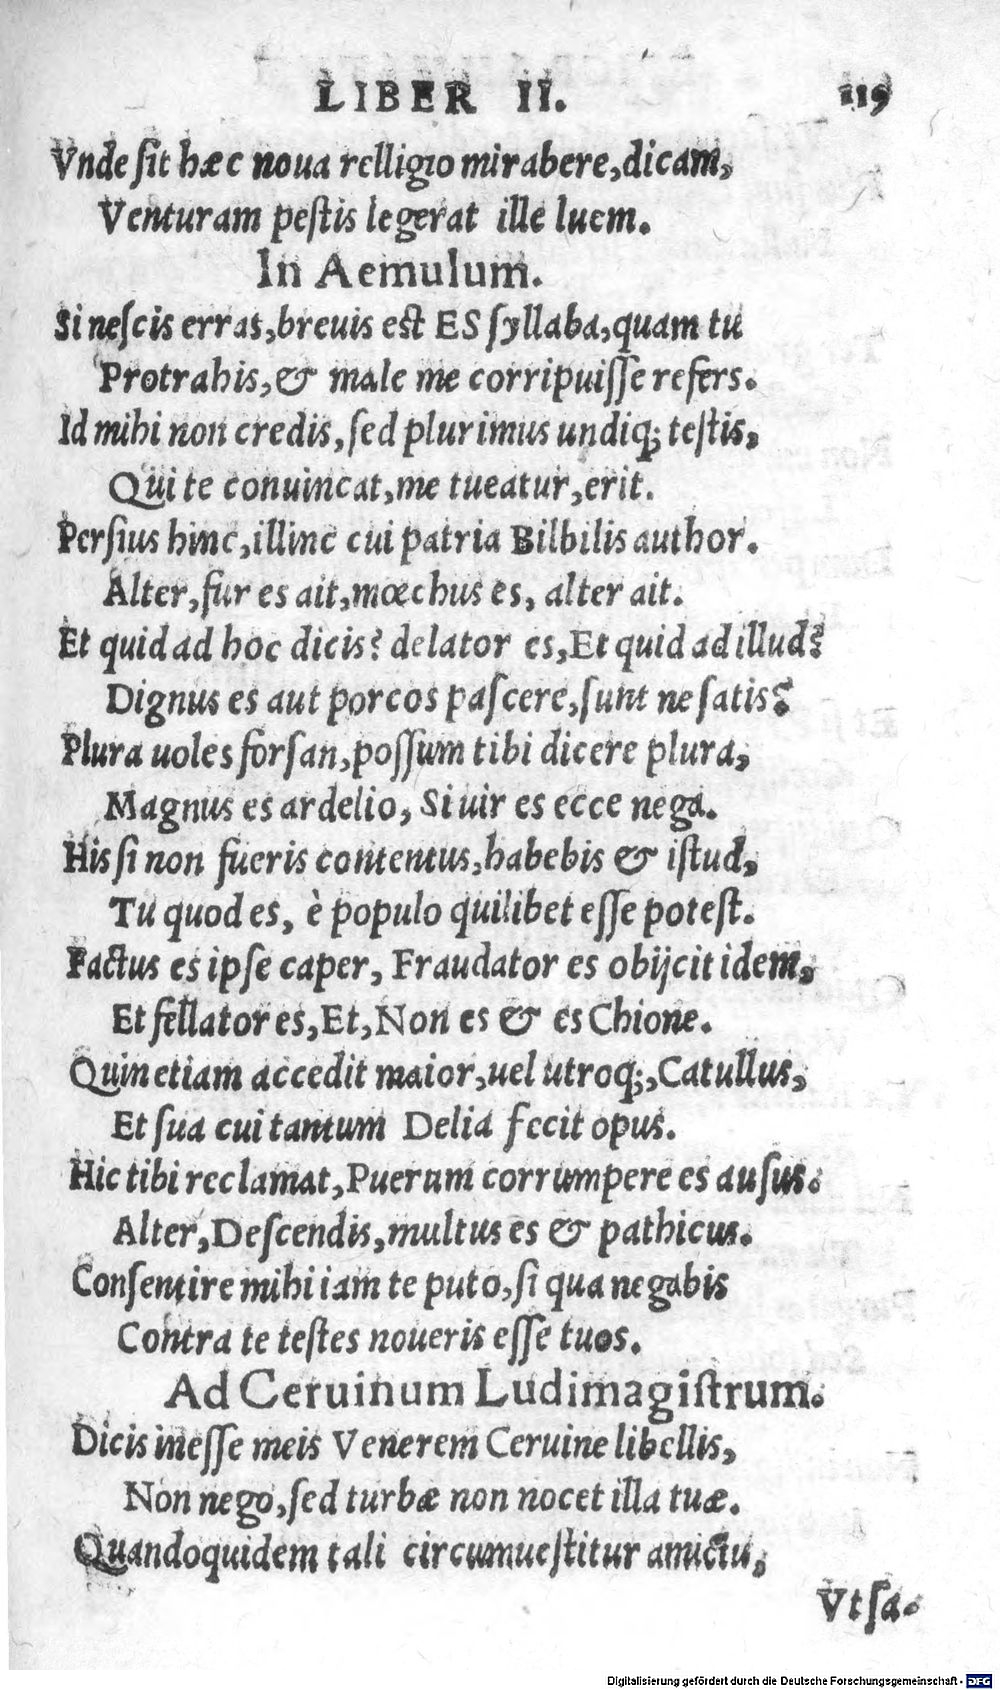 LIBER II. 119
Vnde ſit hæc noua relligio mirabere,dicam,
Venturam peſtis legerat ille luem.
In Aemulum.
Si neſcis erras,breuis est ES ſyllaba,quam tu
Protrahis,& male me corripuiſſe refers.
Id mihi non credis,ſed plurimus undiq; teſtis,
Qui te conuincat,me tueatur,erit.
Perſius hinc,illinc cui patria Bilbilis author.
Alter,fur es ait,mœchus es, alter ait.
Et quid ad hoc dicis? delator es,Et quid ad illud?
Dignus es aut porcos paſcere,ſunt ne ſatis?
Plura uoles forſan,poſſum tibi dicere plura,
Magnus es ardelio, Si uir es ecce nega.
His ſi non fueris contentus,habebis & iſtud,
Tu quod es, è populo quilibet eſſe poteſt.
Factus es ipſe caper, Fraudator es obijcit idem,
Et fellator es,Et,Non es & es Chione.
Quin etiam accedit maior,uel utroq;,Catullus,
Et ſua cui tantum Delia fecit opus.
Hic tibi reclamat,Puerum corrumpere es auſus.
Alter,Deſcendis,multus es & pathicus.
Conſentire mihi iam te puto,ſi qua negabis
Contra te teſtes noueris eſſe tuos.
Ad Ceruinum Ludimagiſtrum.
Dicis ineſſe meis Venerem Ceruine libellis,
Non nego,ſed turbæ non nocet illa tuæ.
Quandoquidem tali circumueſtitur amictu,
Vt ſa-
Digitalisierung gefördert durch die Deutsche Forschungsgemeinschaft - DFG